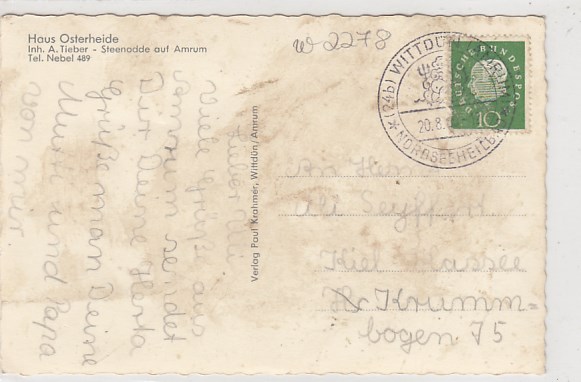 Haus Osterheide
Inh. A. Tieber - Steenodde auf Amrum
Tel. Nebel 489
W 2278
(24b) WITTDÜN
20.8.
NORDSEEHEILB
DEUTSCHE BUNDESPOST
10
Verlag Paul Krahmer, Wittdün/Amrum
Lieber
Viele Grüße aus
Amrum sendet
Dir Deine Herta
Grüße man Deine
Mutti und Papa
von mir.
An
Seyffert
Kiel Hassee
Krumm-
bogen 75